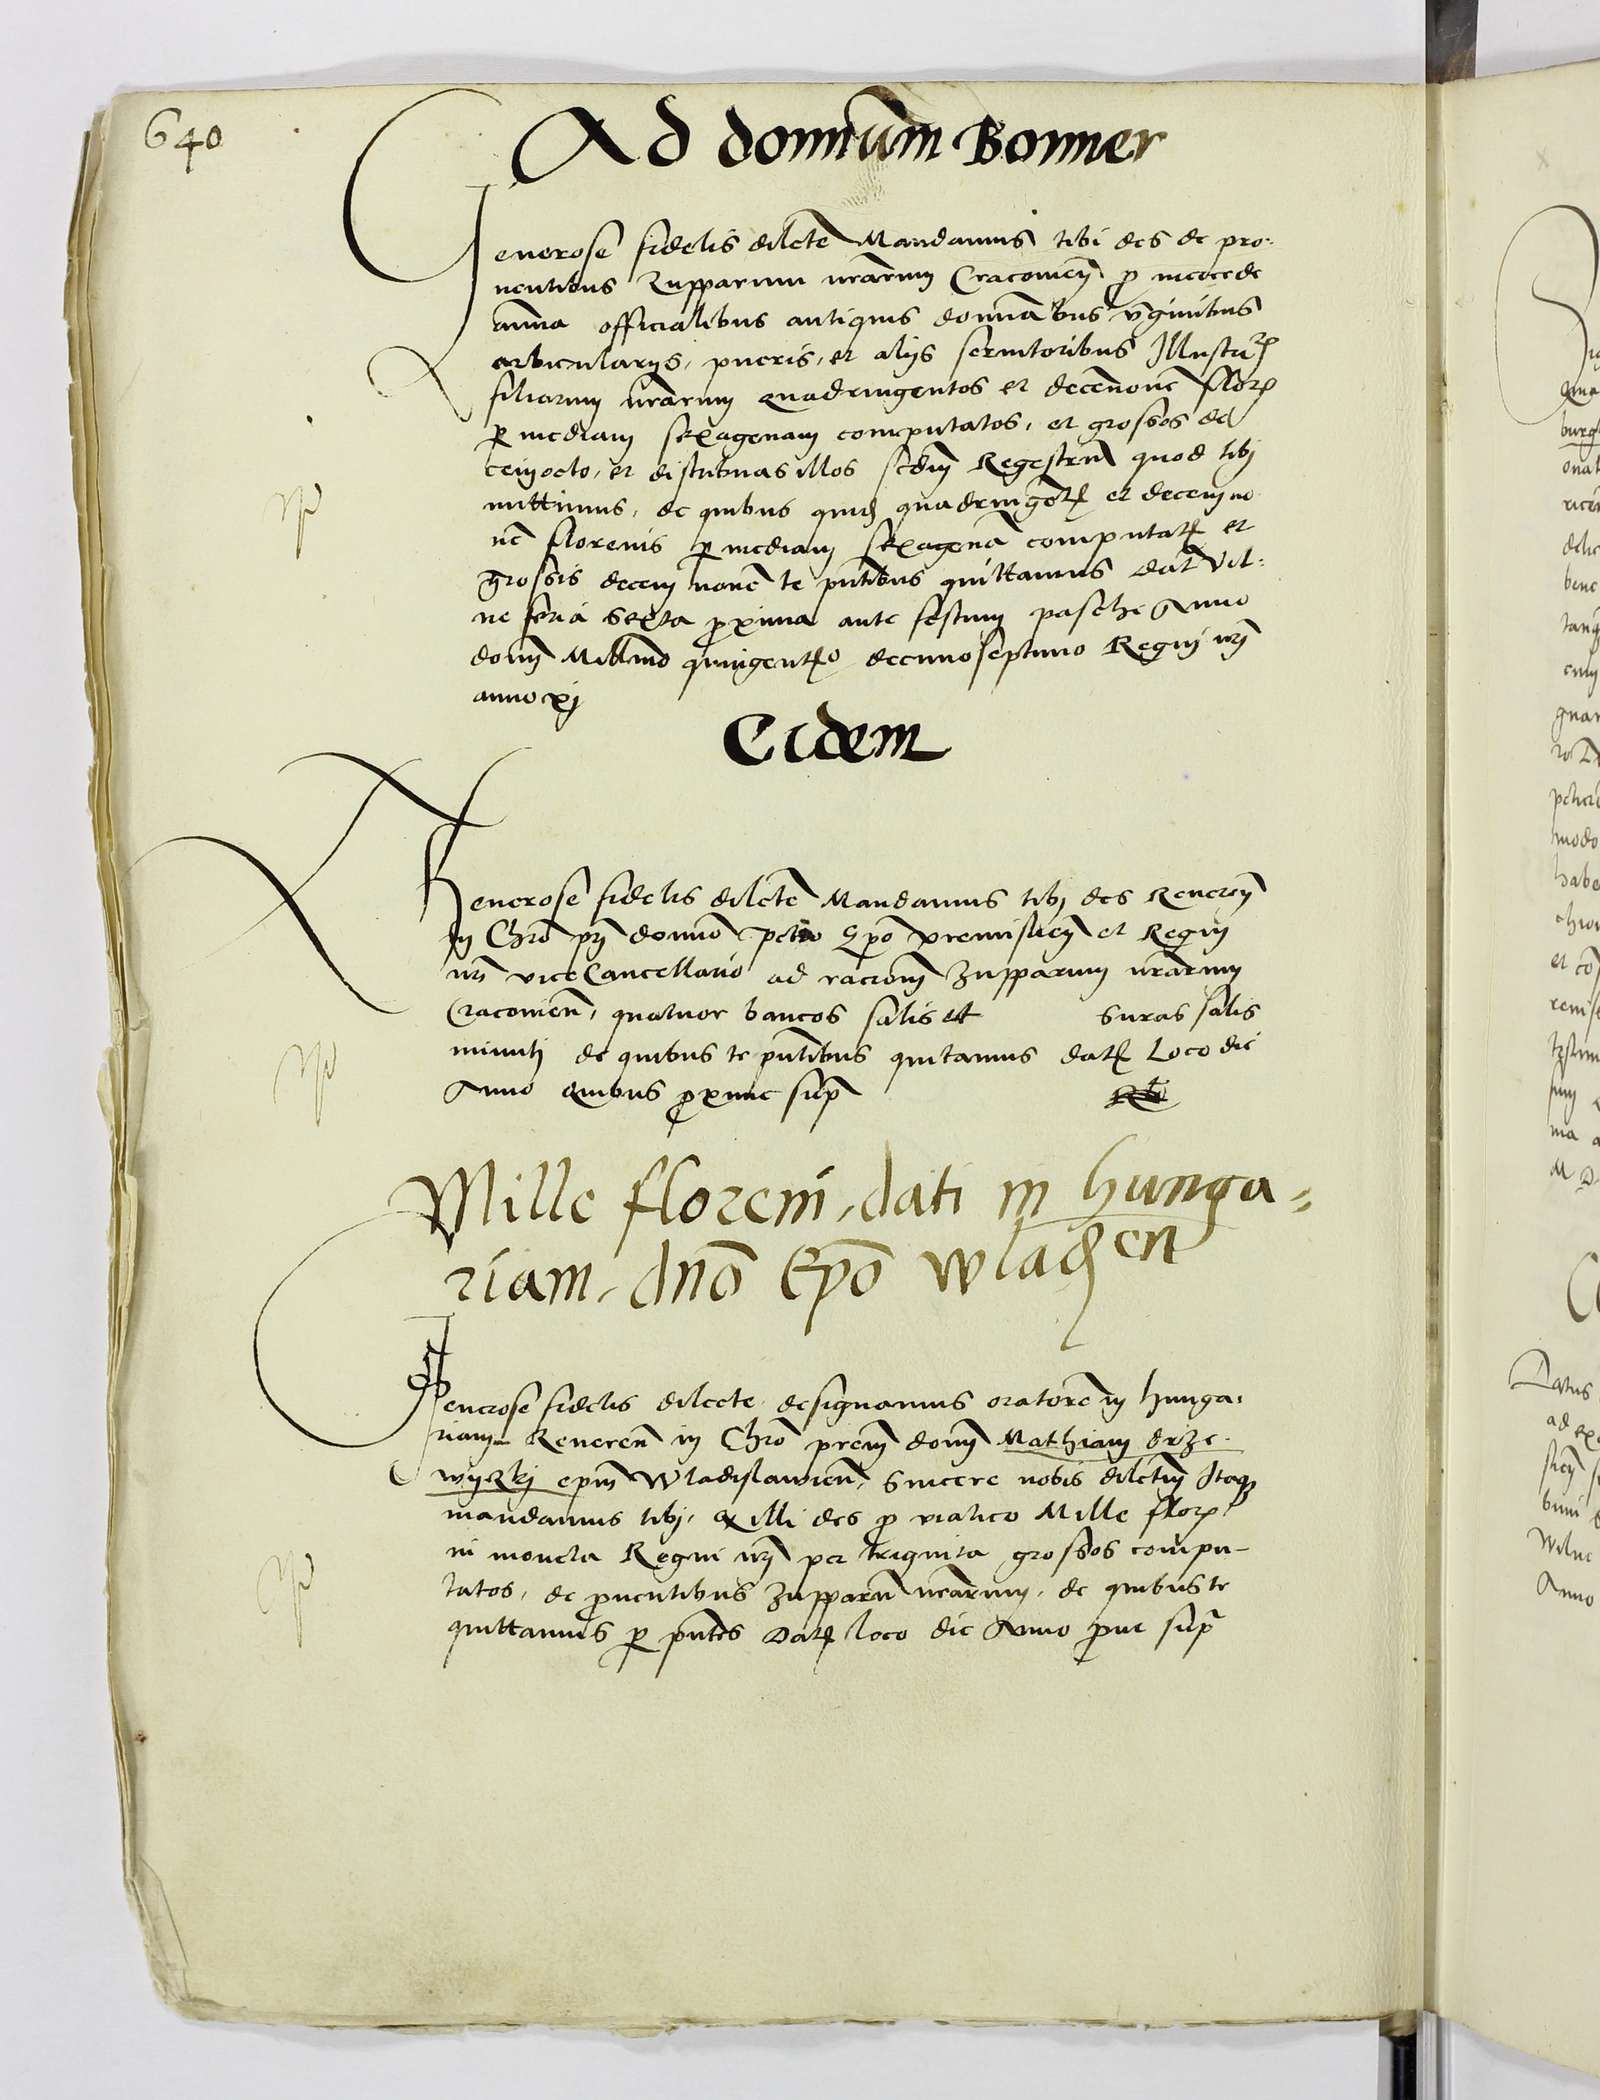 640
Ad dominum Bonner
Generose fidelis dilecte Mandamus tibi des de pro:
ventibus Zupparum nrarum Cracovien p mercede
annua officialibus antiquis dominabus virginibus
cubiculariis, pueris, et aliis servitoribus Illustr
filiarum nrarum quadringentos et decemnove flor
p mediam sexagenam computatos, et grossos de
cem octo, et distribuas illos scdm Regestrum quod tibj
mittimus, de quibus quid quadringet et decem no
ve florenis p mediam sexagena computat et
grossis decem nove te pntibus quittamus dat Vil:
ne feria sexta pxima ante festum pasche Anno
domi Millmo quingento decimoseptimo Regni nri
anno xj
Eidem
Generose fidelis dilecte Mandamus tibj des Reveren
in Chro pri domino petro Epo premislien et Regni
nri vice Cancellario ad racionem Zupparum nrarum
Cracovien, quatuor bancos salis et suras salis
minuti de quibus te pntibus quitamus dat Loco die
Anno quibus pxime sup
Mille floreni, dati in hunga=
riam, dno Epo Wladien
Generose fidelis dilecte designamus oratore in hunga:
riam Reveren in Chro prem domi Mathiam drze
wyczkj epm Wladislavien, Sincere nobis dilectum Itaq
mandamus tibj, ex illi des p viatico Mille flor
in moneta Regni nri per triginta grossos compu-
tatos, de pventibus Zupparu nrarum, de quibus te
quittamus p pntes Dat loco die Anno put supra